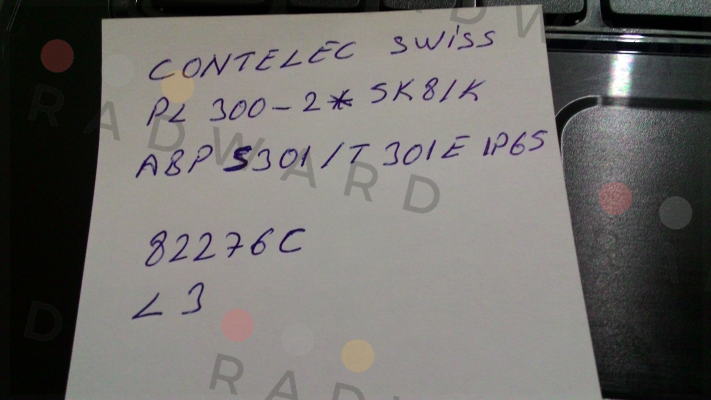 CONTELEC SWISS
PL 300-2* 5K81K
ABP S301/T301E IP65
82276C
L3
RADWARD
RADWARD
RAD